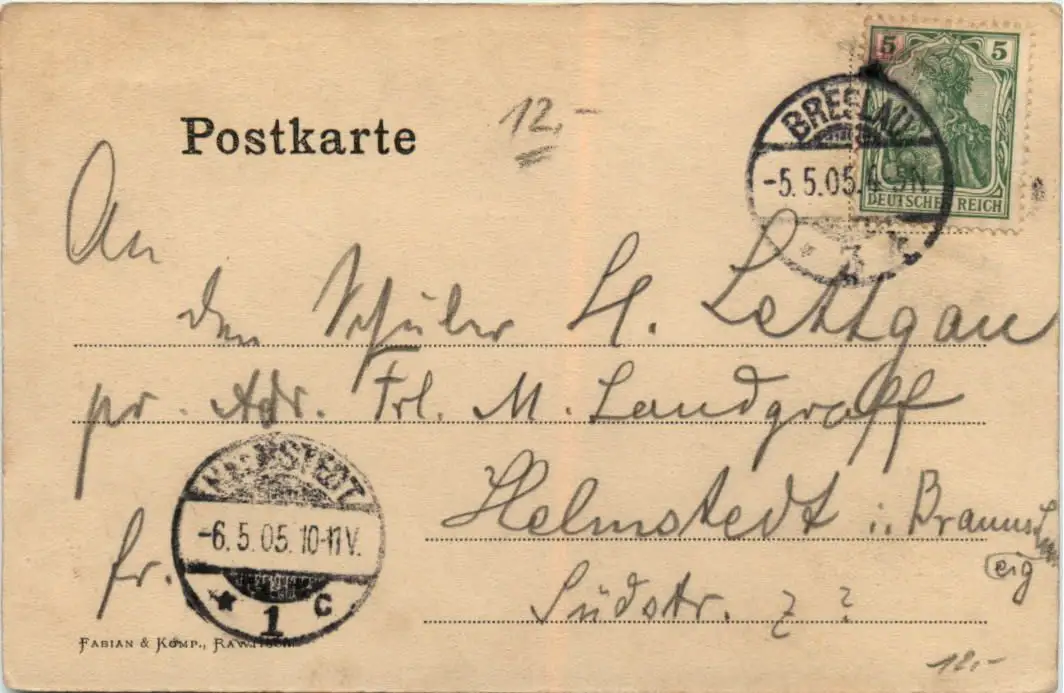 Postkarte
12.-
5 5
DEUTSCHES REICH
BRESLAU
-5.5.05. 5N.
An
den Schüler H. Lettgau
pr. Adr. Frl. M. Landgraff
Helmstedt i. Braunschw
eig
fr.
Südstr. 7 ?
HELMSTEDT
-6.5.05. 10-11V.
* 1 c
FABIAN & KOMP., RAWITSCH
12.-